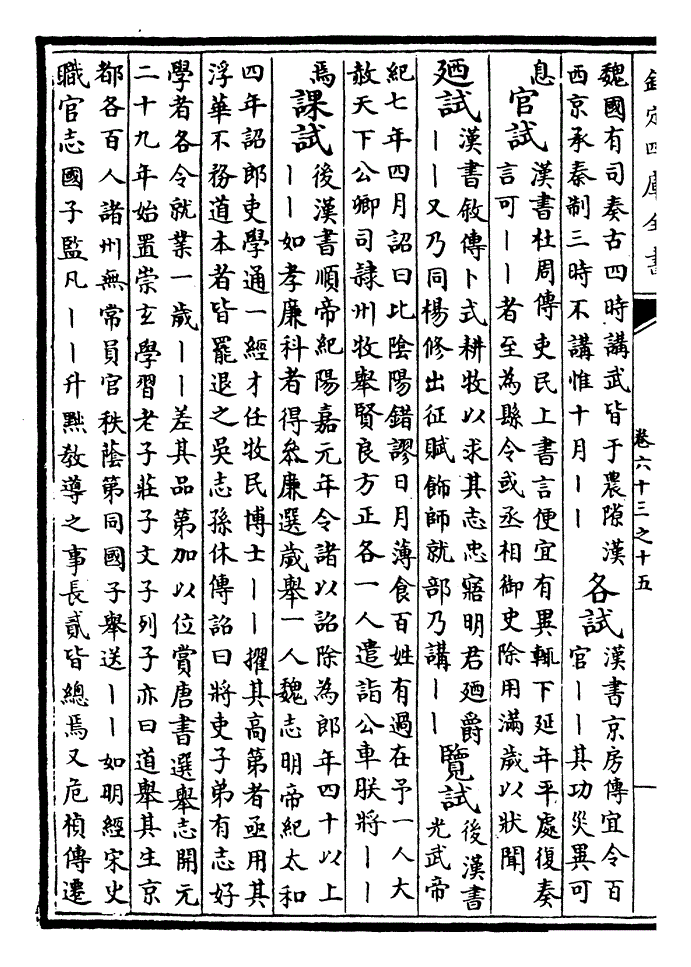 欽定四庫全書
卷六十三之十五
魏國有司奏古四時講武皆于農隙漢
西京承秦制三時不講惟十月丨丨
各試
漢書京房傳宜令百
官丨丨其功災異可
息
官試
漢書杜周傳吏民上書言便宜有異輒下延年平處復奏
言可丨丨者至為縣令或丞相御史除用滿歲以狀聞
廼試
漢書敘傳卜式耕牧以求其志忠寤明君廼爵
丨丨又乃同楊修出征賦飾師就部乃講丨丨
覽試
後漢書
光武帝
紀七年四月詔曰比陰陽錯謬日月薄食百姓有過在予一人大
赦天下公卿司隸州牧舉賢良方正各一人遣詣公車朕將丨丨
焉
課試
後漢書順帝紀陽嘉元年令諸以詔除為郎年四十以上
丨丨如孝廉科者得參廉選歲舉一人魏志明帝紀太和
四年詔郎吏學通一經才任牧民博士丨丨擢其高第者亟用其
浮華不務道本者皆罷退之吳志孫休傳詔曰將吏子弟有志好
學者各令就業一歲丨丨差其品第加以位賞唐書選舉志開元
二十九年始置崇玄學習老子莊子文子列子亦曰道舉其生京
都各百人諸州無常員官秩蔭第同國子舉送丨丨如明經宋史
職官志國子監凡丨丨升黜教導之事長貳皆總焉又危楨傳遷